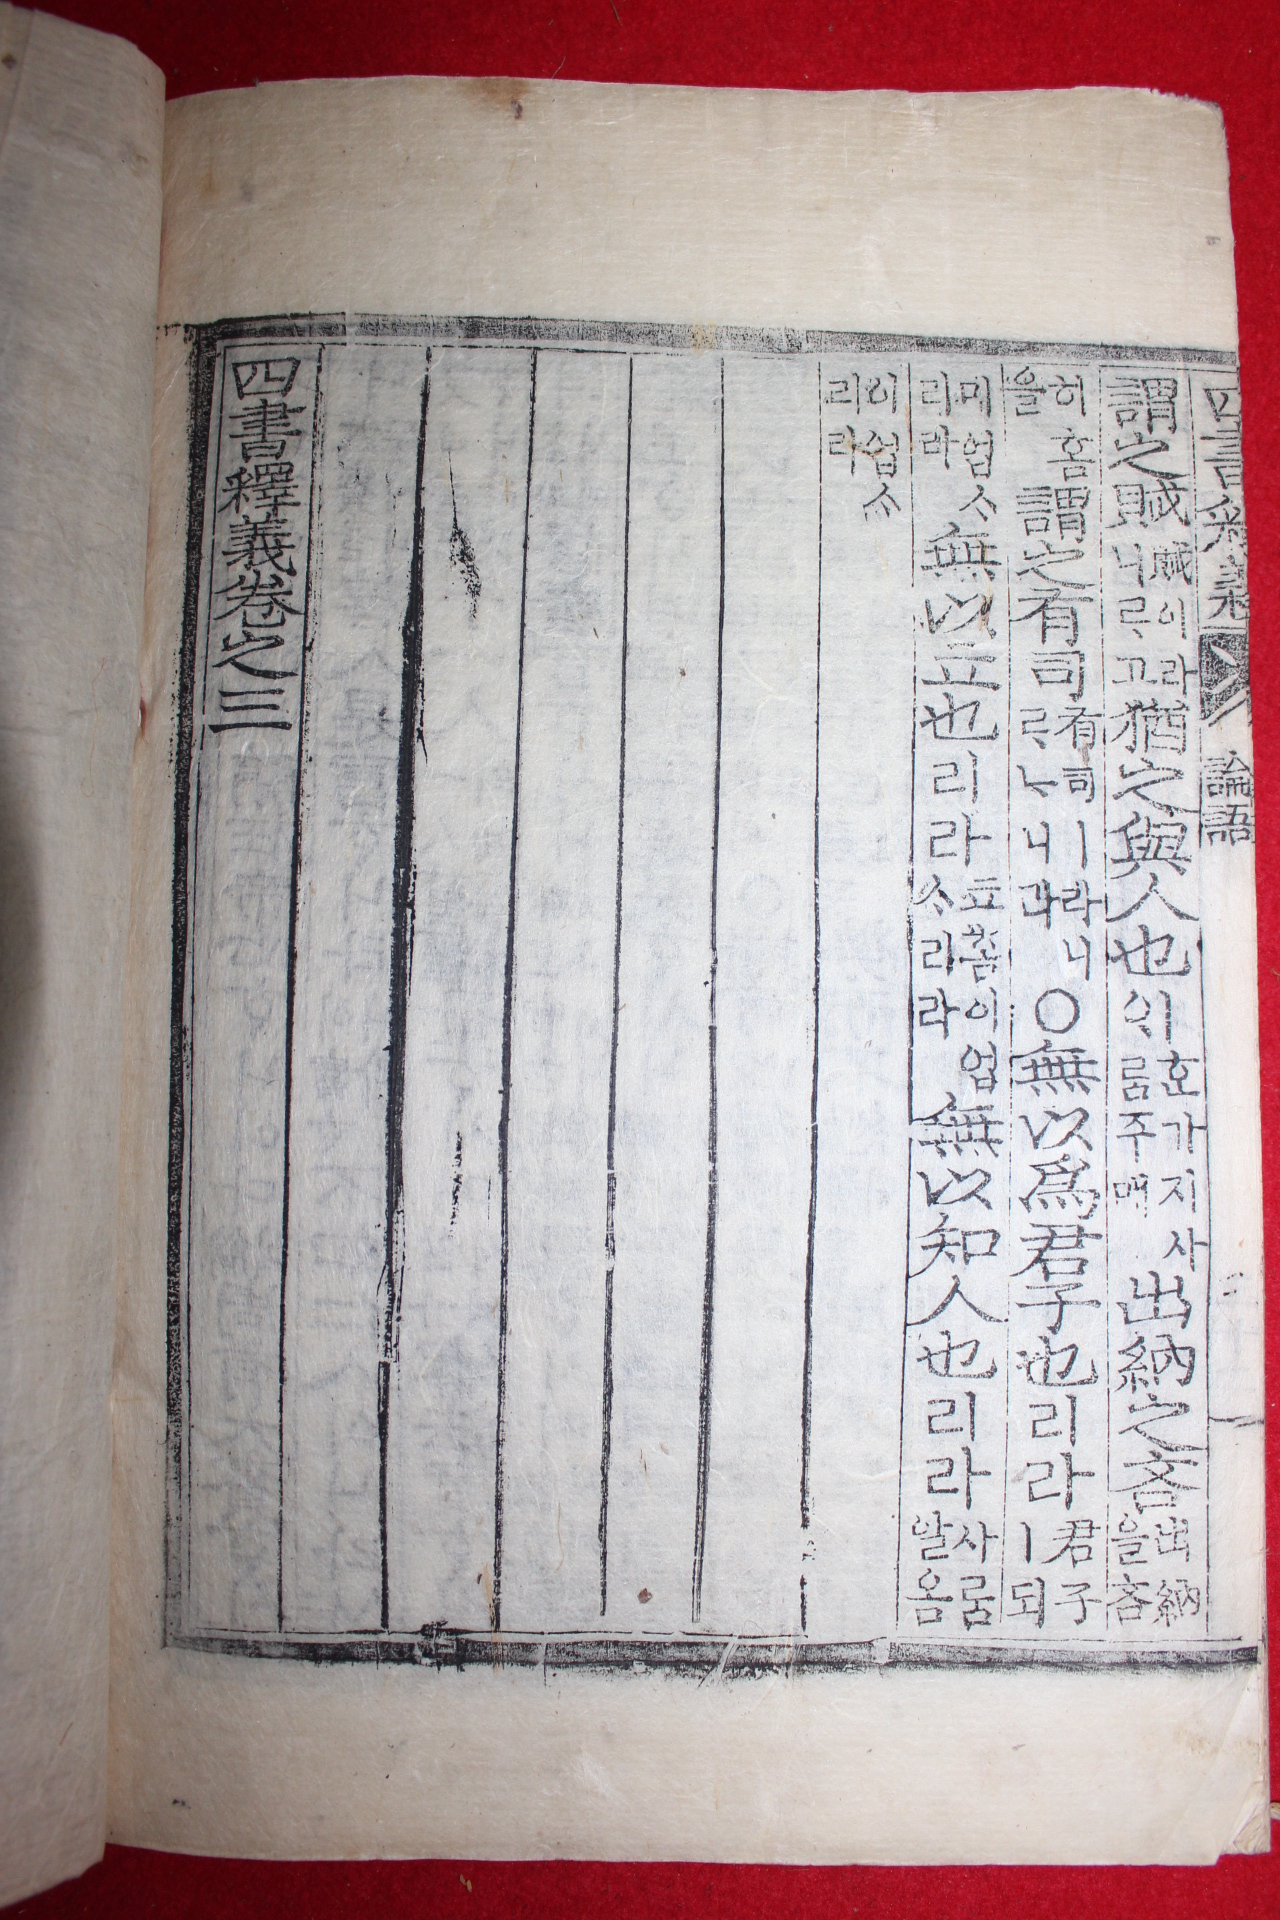 四書釋義 論語
謂之賊 賊이라니ᄅᆞ고 猶之與人也 이ᄒᆞᆫ가지사 룸주매 出納之吝 出納을吝
히홈을 謂之有司 有司ㅣ라니ᄅᆞᄂᆞ니라 ○無以爲君子也리라 君子ㅣ되
메업ᄉᆞ리라 無以立也리라 이업ᄉᆞ리라 無以知人也리라 사룸알옴
이업ᄉᆞ리라
四書釋義卷之三